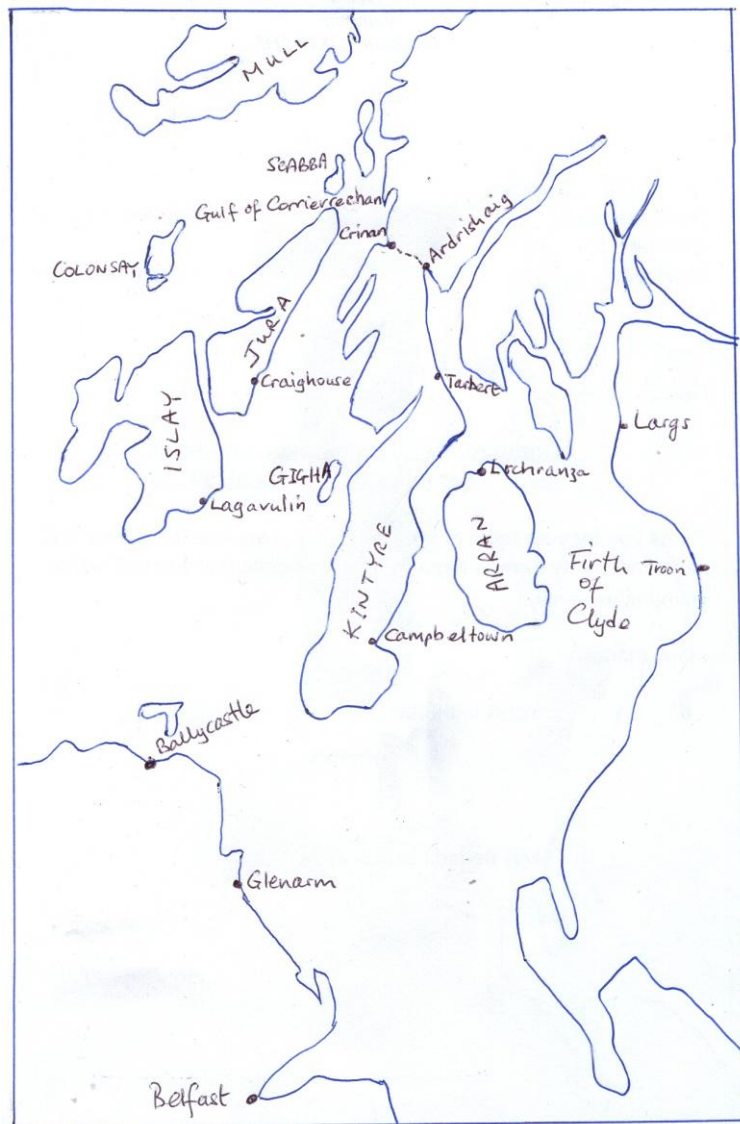 MULL
SCABBA
Gulf of Corrievrechan
Crinan
Ardrishaig
COLONSAY
JURA
Craighouse
Tarbert
ISLAY
Largs
GIGHA
Lochranza
Lagavulin
KINTYRE
ARRAN
Firth
of
Clyde
Troon
Campbeltown
Ballycastle
Glenarm
Belfast